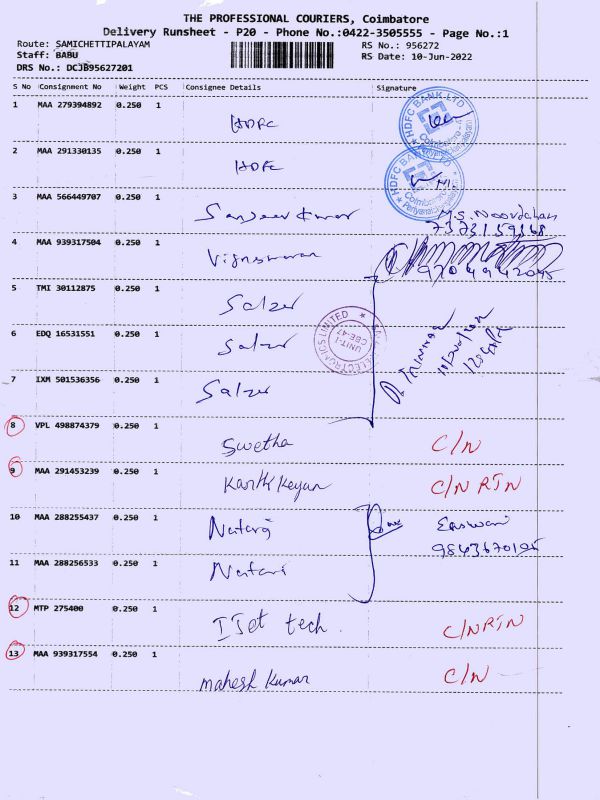 THE PROFESSIONAL COURIERS, Coimbatore
Delivery Runsheet - P20 - Phone No.:0422-3505555 - Page No.:1
Route: SAMICHETTIPALAYAM RS No.: 956272
Staff: BABU RS Date: 10-Jun-2022
DRS No.: DCJB95627201
S No Consignment No Weight PCS Consignee Details Signature
1 MAA 279394892 0.250 1
HDFC
HDFC BANK LTD
Coimbatore
Periyanaickenpalayam
2 MAA 291330135 0.250 1
HDFC
HDFC BANK LTD
Coimbatore
Periyanaickenpalayam
3 MAA 566449707 0.250 1
Sanjeev Kumar M.S. Noordchan
7373159368
4 MAA 939317504 0.250 1
Vigneswaran
5 TMI 30112875 0.250 1
Salzer
6 EDQ 16531551 0.250 1
Salzer
SALZER ELECTRONICS LIMITED
UNIT-I
CBE-47
7 IXM 501536356 0.250 1
Salzer
8 VPL 498874379 0.250 1
Swetha C/N
9 MAA 291453239 0.250 1
Karthikeyan C/N RTN
10 MAA 288255437 0.250 1
Nataraj Easwari
11 MAA 288256533 0.250 1
12 MTP 275400 0.250 1
IJet tech. C/N RTN
13 MAA 939317554 0.250 1
Mahesh Kumar C/N